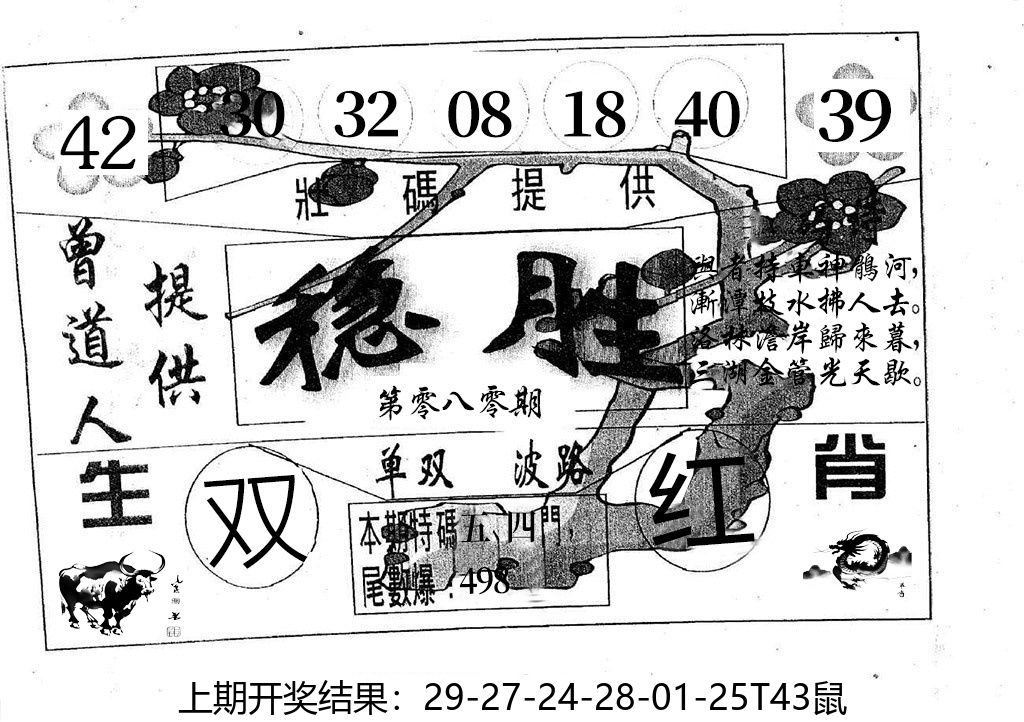 42 30 32 08 18 40 39
壯碼提供
曾道人
提供
穩胜
第零八零期
與者持車神鵲河，
漸潭妓水拂人去。
洛林澹岸歸來暮，
三湖金管光天歇。
单双 波路
生肖
双
红
本期特碼五、四門，
尾數爆：498
上期开奖结果：29-27-24-28-01-25T43鼠